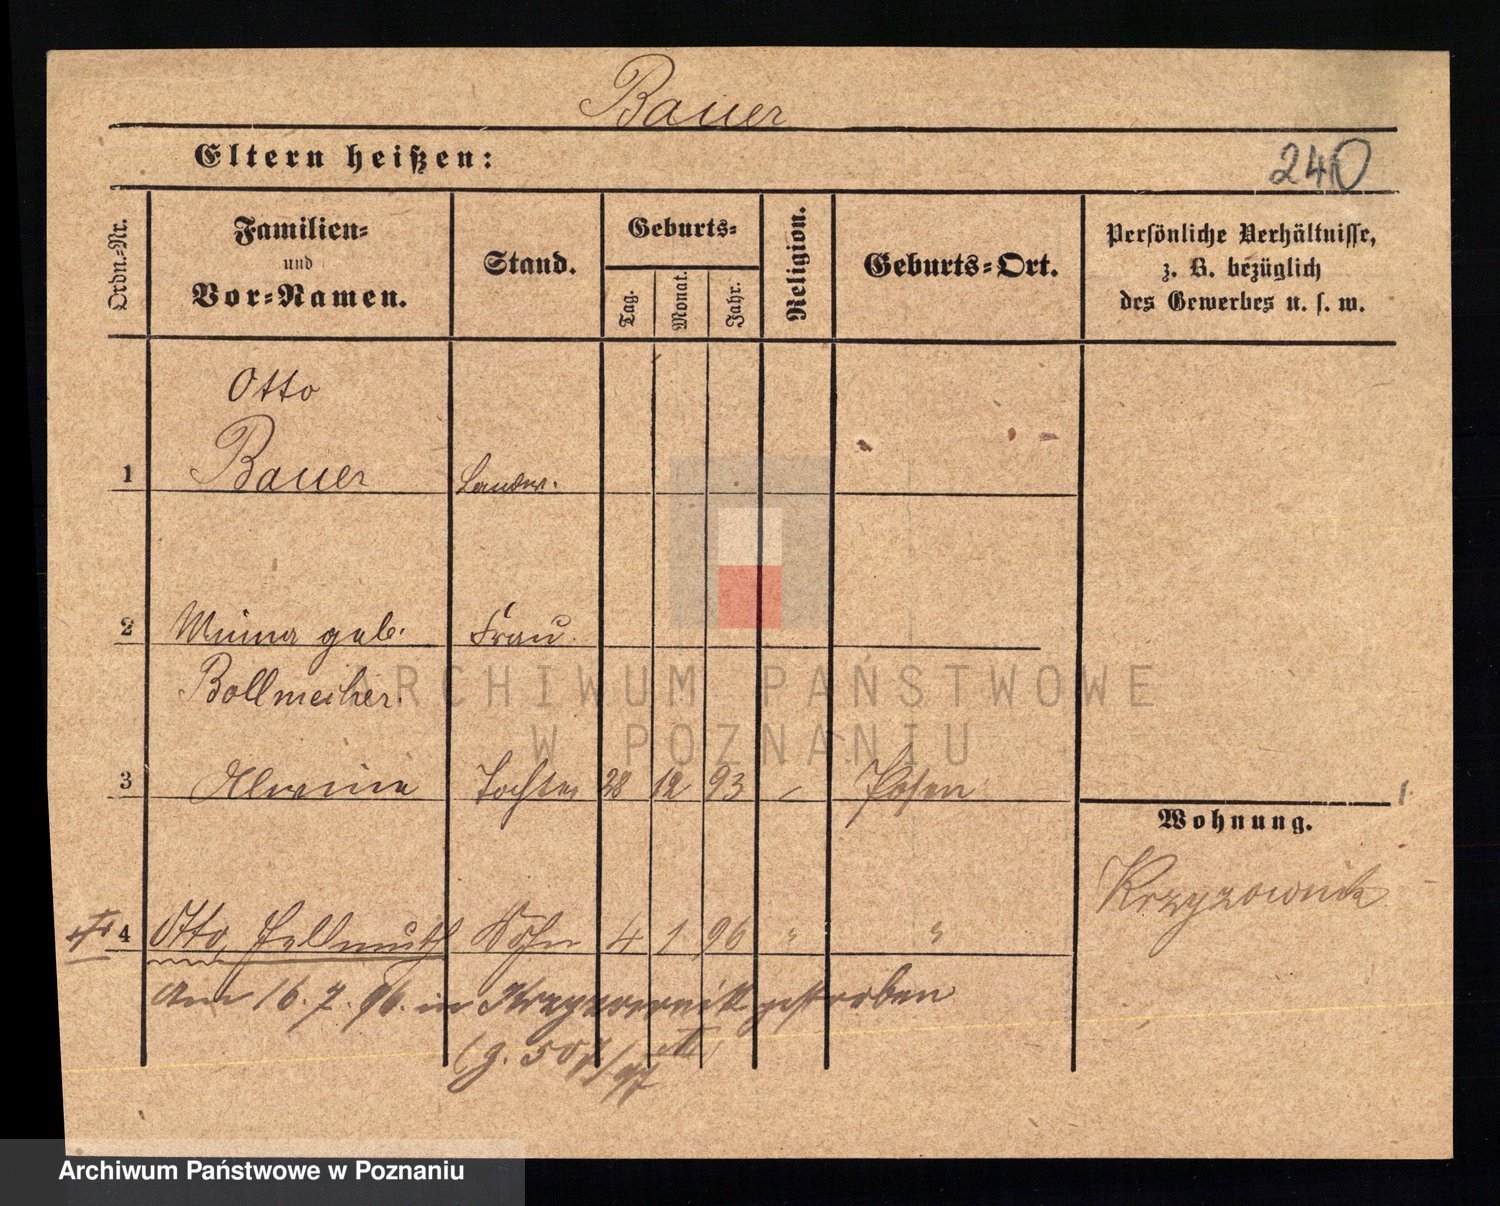 Bauer
Eltern heißen:
240
Ordn.-Nr.
Familien-
und
Vor-Namen.
Stand.
Geburts-
Tag.
Monat.
Jahr.
Religion.
Geburts-Ort.
Persönliche Verhältnisse,
z. B. bezüglich
des Gewerbes u. s. w.
Otto
1 Bauer Landw.
2 Minna geb. Frau
Bollmeiher.
3 Alwine Tochter 28 12 93 Posen
Wohnung.
Krzyzownik
4 Otto, Hellmuth Sohn 4 1 96 " "
Am 16.7.96. in Krzyzownik gestorben
ARCHIWUM PAŃSTWOWE
W POZNANIU
Archiwum Państwowe w Poznaniu